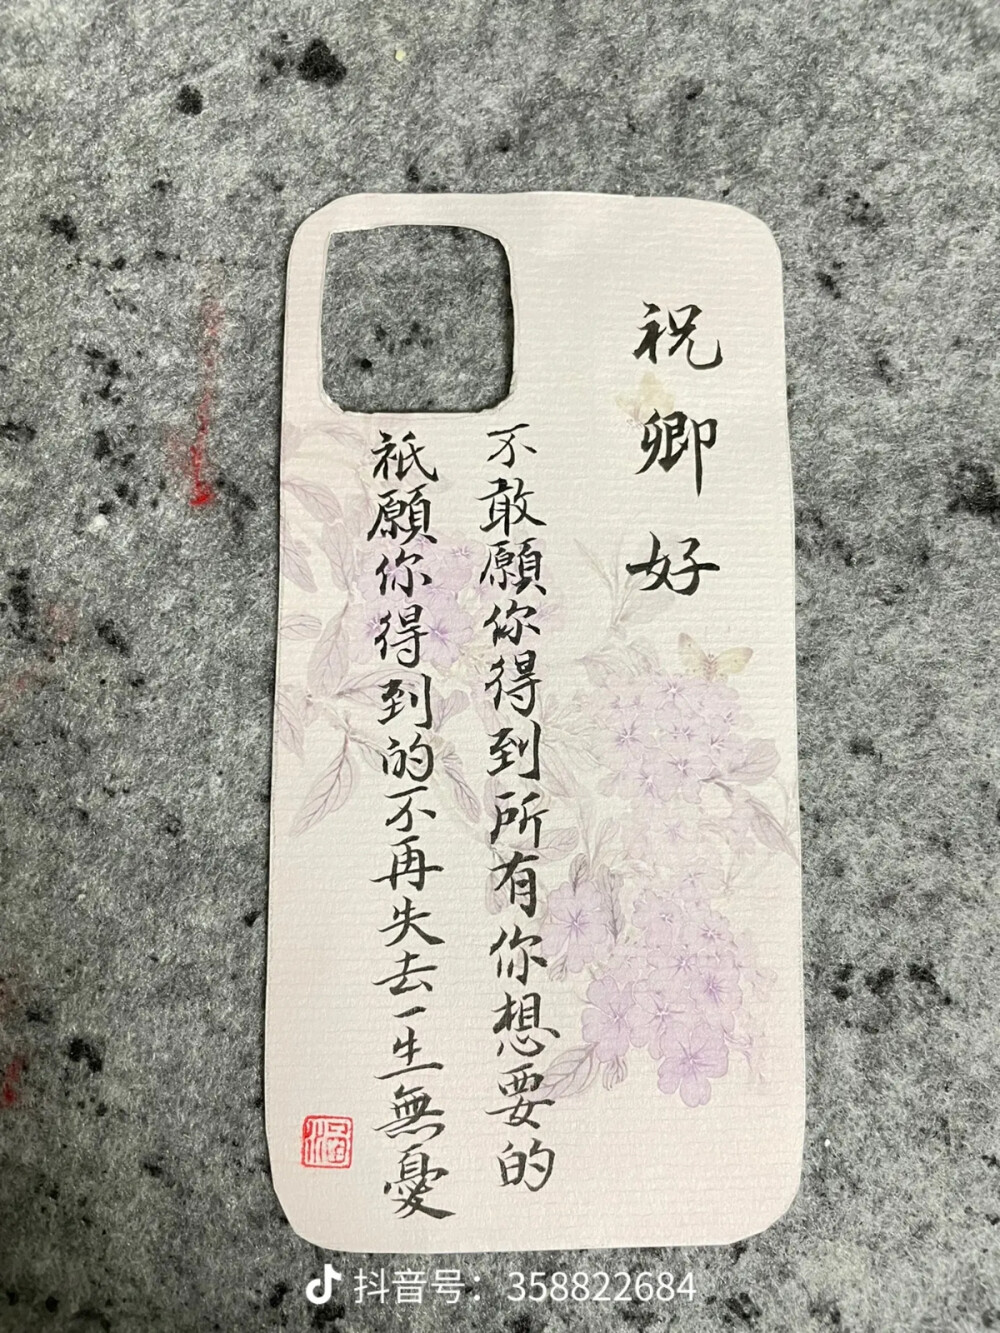 祝卿好
不敢願你得到所有你想要的
祇願你得到的不再失去一生無憂
抖音号：358822684